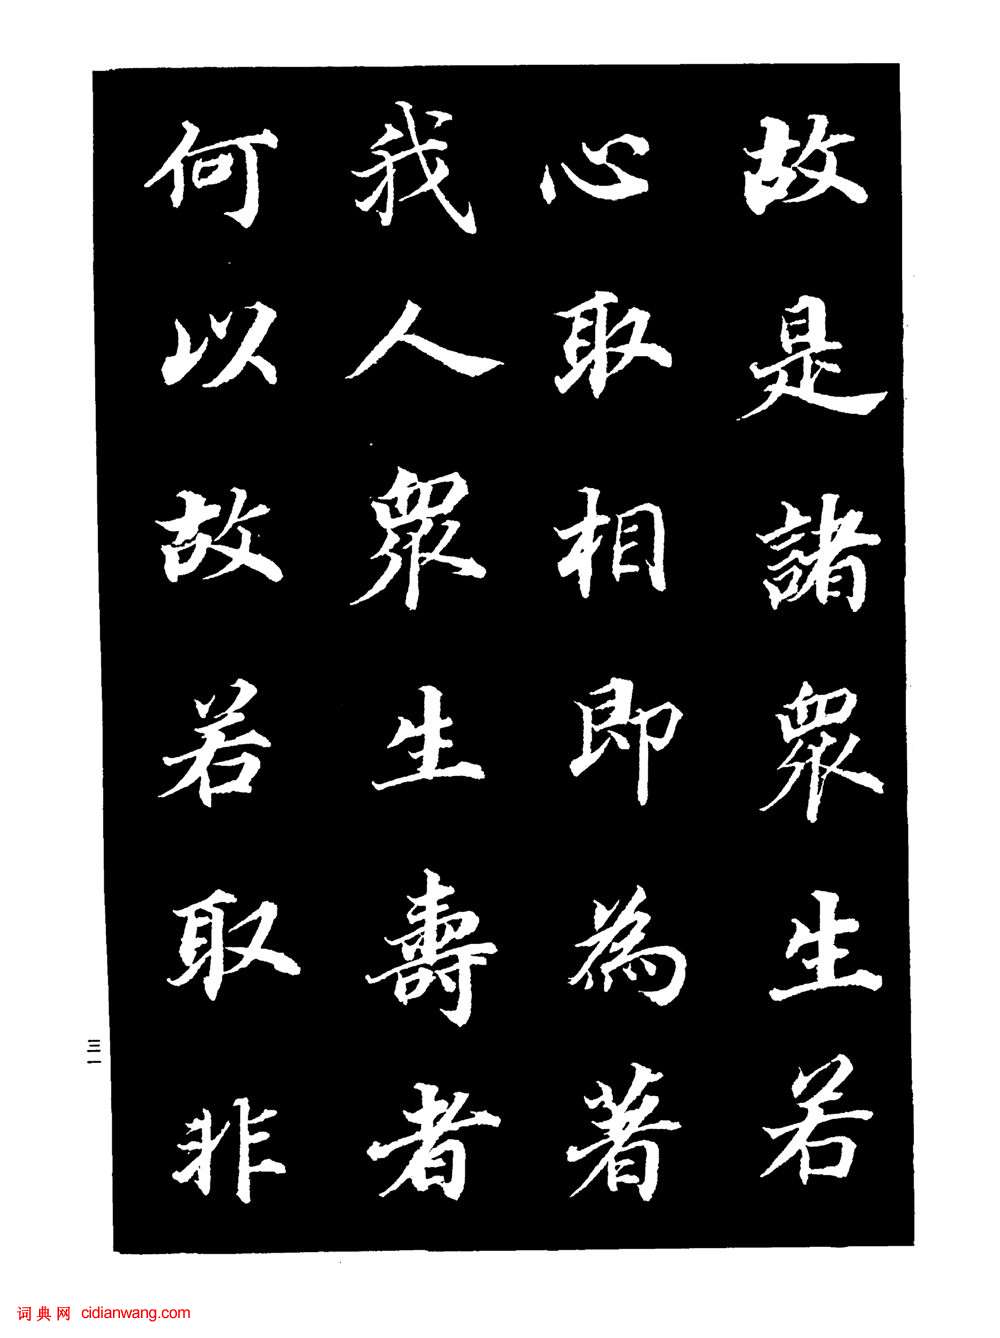 故是諸眾生若
心取相即為著
我人眾生壽者
何以故若取非
三一
词典网 cidianwang.com